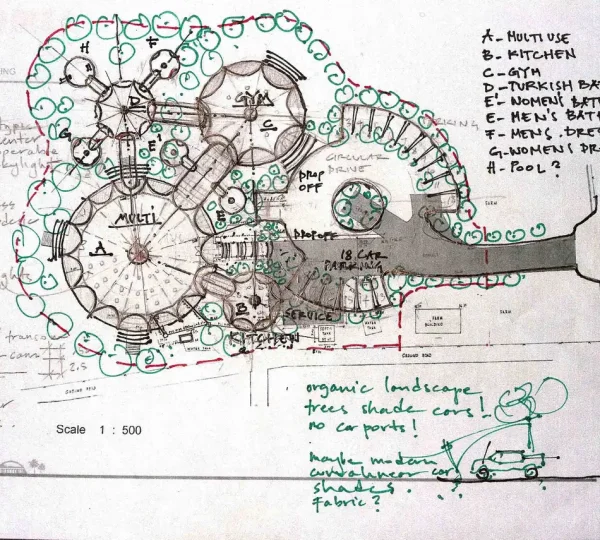 A - MULTI USE
B - KITCHEN
C - GYM
D - TURKISH BA
E' - WOMEN'S BAT
E - MEN'S BATH
F - MENS. DRE
G - WOMEN'S DR
H - POOL ?
H
F
D
G
E
GYM
C
MULTI
A
E
B
KITCHEN
CIRCULAR
DRIVE
DROP
OFF
DROP OFF
18 CAR
PARKING
SERVICE
PARKING
FARM
BUILDING
Scale 1 : 500
2.5
organic landscape
trees shade cars!
no car ports!
maybe modern
curvalinear car
shades.
Fabric?